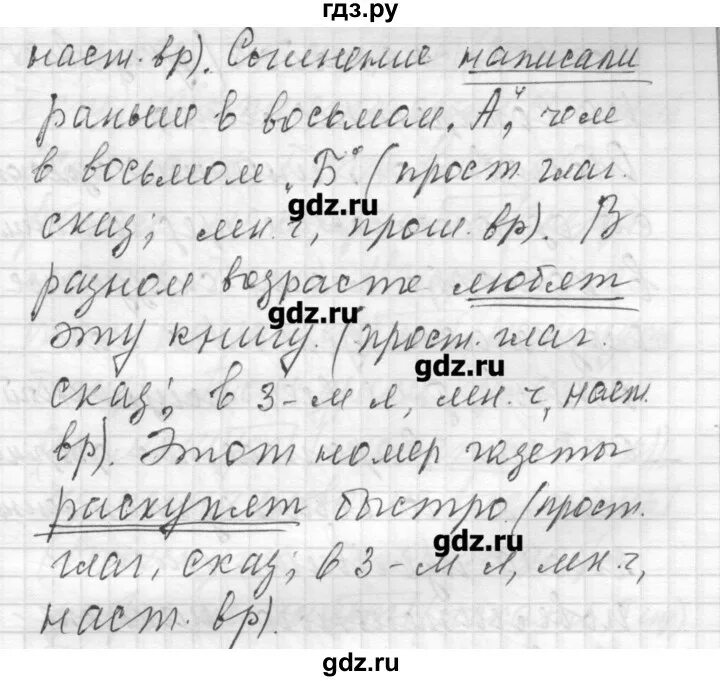 гдз.ру
наст. вр). Сочинение написали
раньше в восьмом „А“, чем
в восьмом „Б“. (прост. глаг.
gdz.ru
сказ; мн. ч, прош. вр). В
разном возрасте любят
gdz.ru
эту книгу. (прост. глаг.
gdz.ru
сказ; в 3-м л, мн. ч, наст.
вр). Этот номер газеты
раскупят быстро. (прост.
gdz.ru
глаг, сказ; в 3-м л, мн. ч,
наст. вр).
gdz.ru